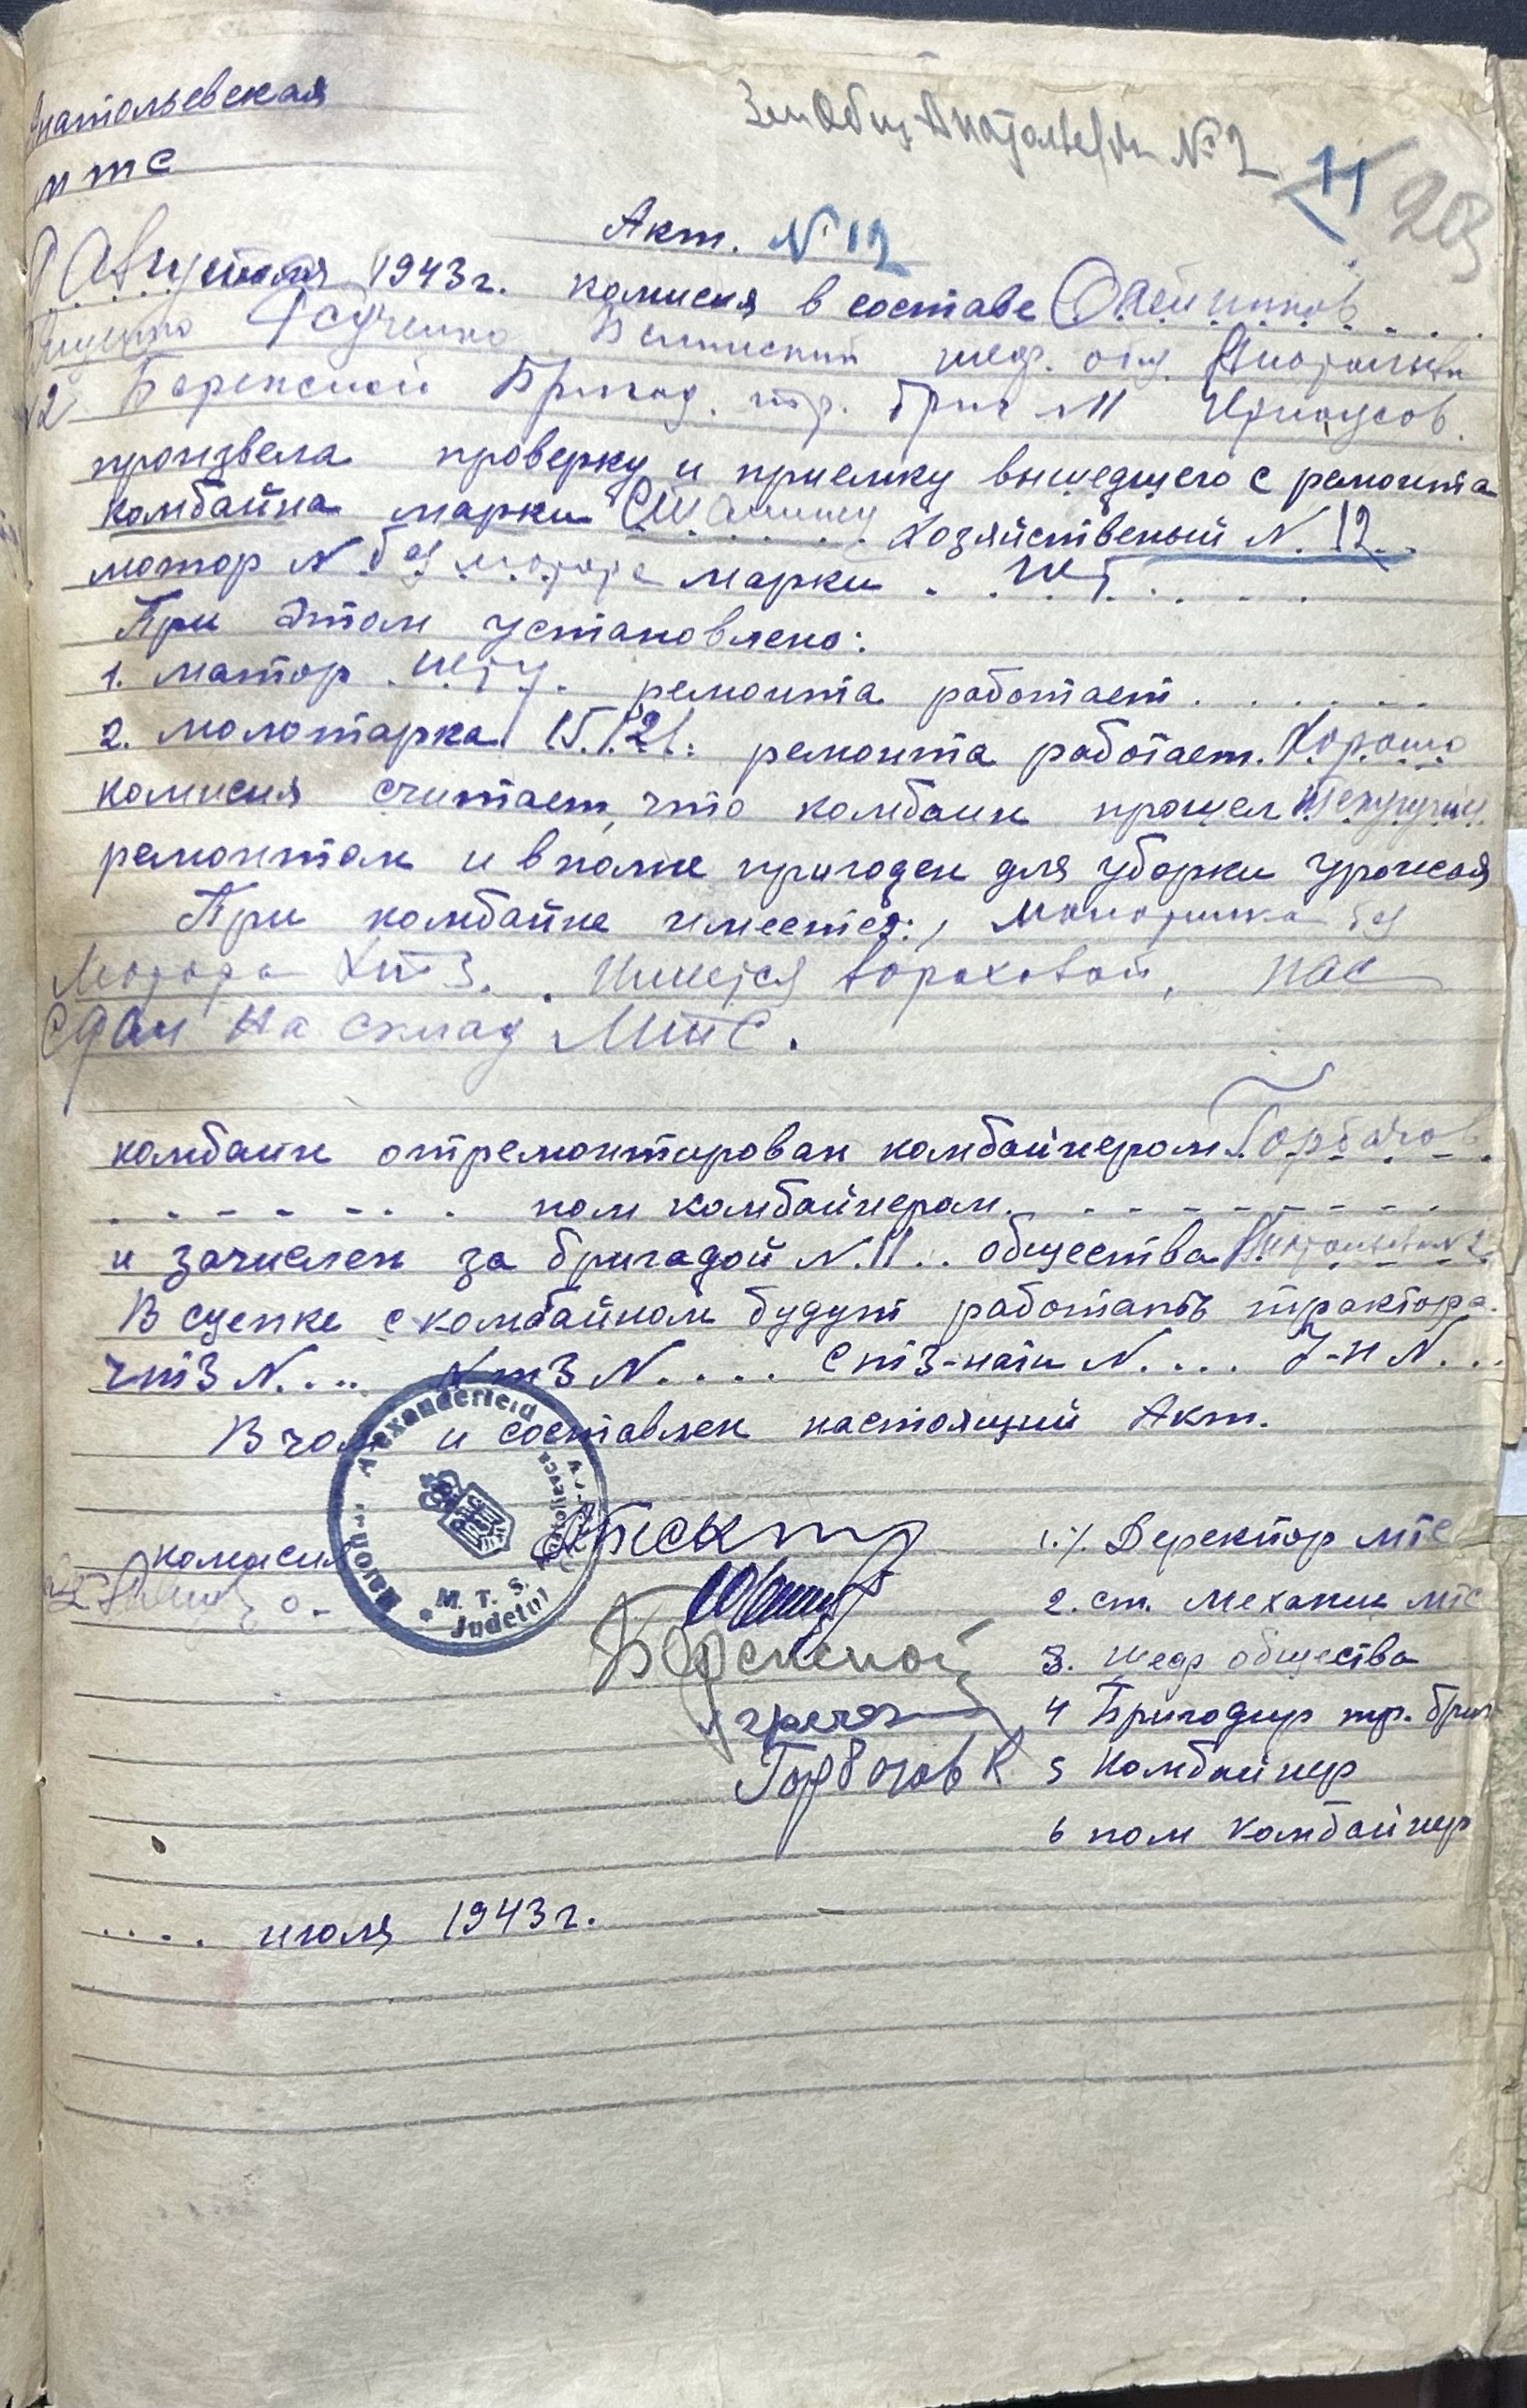 Анатольевская
мтс
ЗемОбщ Анатольевк №2 11 29
Акт. N 12
Августа 1943г. комисия в составе Олейников
шеф. общ. Анатольевк
N2 Бережной Бригад. тр. бриг 11
произвела проверку и приемку вышедщего с ремонта
комбайна марки Хозяйственый N. 12
мотор N без мотора марки . . нет
При этом установлено:
1. матор нету. ремонта работает
2. молотарка 15/2/. ремонта работает. Хорошо
комисия считает, что комбаин прошел текущий
ремонтом и вполне пригоден для уборки урожая
При комбайне имеется:, без
Мотора ХТЗ. Имется Вороховой, пас
сдан на склад МТС.
комбаин отремонтирован комбайнером Горбачов
пом комбайнером
и зачислен за бригадой N. 11 . . общества Анатольевк N 2
В сцепке с комбайном будут работать трактора.
чтЗ N. . .. ХтЗ N. . . . СтЗ-нати N. . . . У-н N. . .
В чом и составлен настоящий Акт.
Raionul Alexanderfeld
M. T. S.
Judetul
комисия 1. Деректор мтс
2. ст. механик мтс
Бережной 3. шеф общества
4 Бригадир тр. бриг
Горбачов К 5 Комбайнер
6 пом комбайнер
.... июля 1943г.